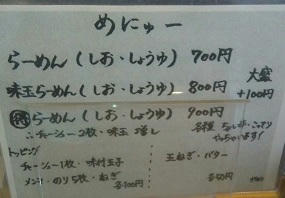 めにゅー
らーめん(しお・しょうゆ) 700円
味玉らーめん(しお・しょうゆ) 800円
大盛
+100円
得らーめん(しお・しょうゆ) 900円
∴チャーシュー2枚・味玉 増し
トッピング
チャーシュー1枚・味付玉子
メンマ・のり5枚・ねぎ
各100円
玉ねぎ・バター
各50円